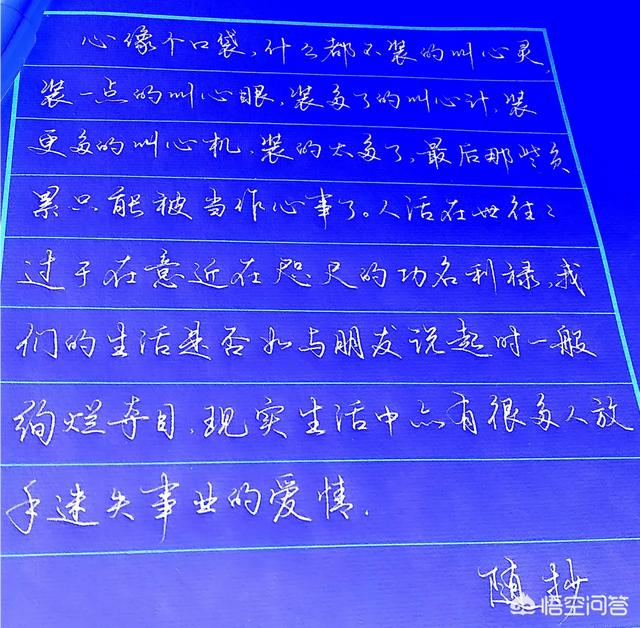 心像个口袋,什么都不装的叫心灵,
装一点的叫心眼,装多了的叫心计,装
更多的叫心机,装的太多了,最后那些负
累只能被当作心事了。人活在世往〻
过于在意近在咫尺的功名利禄,我
们的生活是否如与朋友说起时一般
绚烂夺目,现实生活中亦有很多人放
手迷失事业的爱情.
随抄
悟空问答